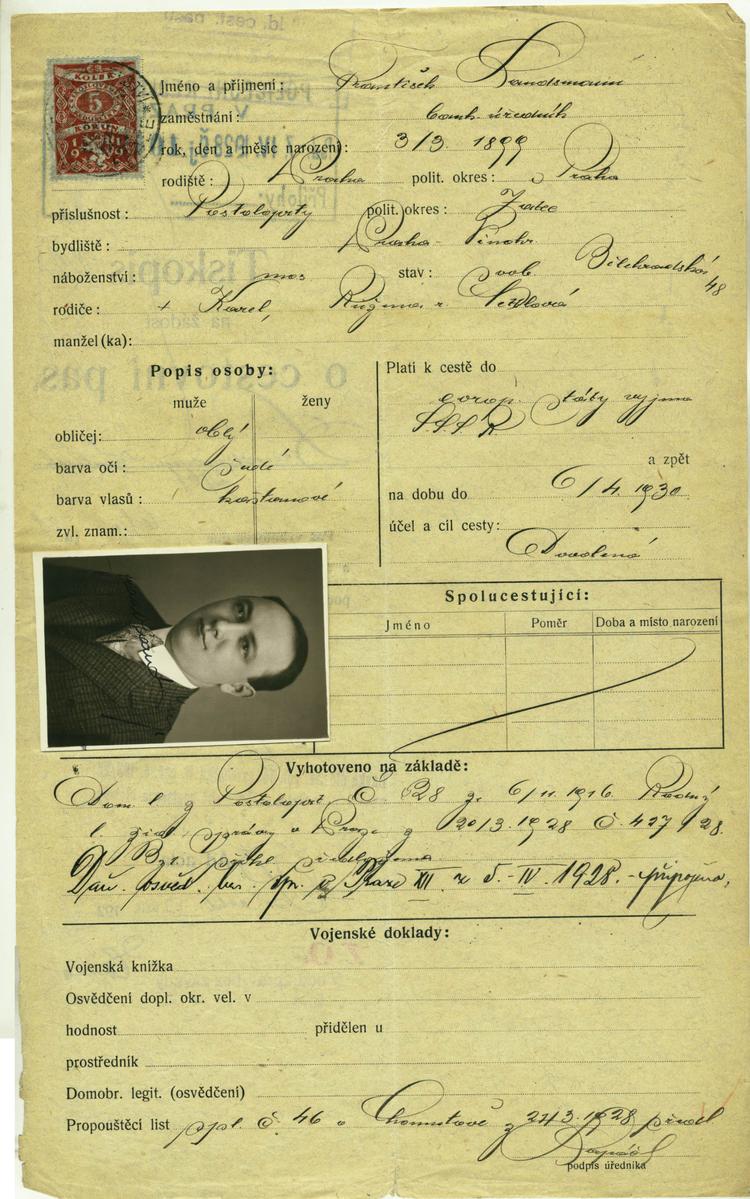 KOLEK
5
KORUN
1919
Jméno a příjmení: František Landsmann
zaměstnání: bank. úředník
rok, den a měsíc narození: 3/3. 1899
rodiště: Praha polit. okres: Praha
příslušnost: Postoloprty polit. okres: Žatec
bydliště: Praha-Vinohr. Bělehradská 48
náboženství: mos stav: svob.
rodiče: + Karel, Růžena r.
manžel (ka):
Popis osoby:
muže ženy
obličej: oblý
barva očí: šedé
barva vlasů: kaštanové
zvl. znam.:
Platí k cestě do
evrop. státy vyjma
S.S.S.R
a zpět
na dobu do 6/4. 1930
účel a cíl cesty:
Dovolená
Spolucestující:
Jméno Poměr Doba a místo narození
Vyhotoveno na základě:
Dom. l. z Postoloprt Č 628 z. 6/11. 1916. Rodný
l. žid. správy v Praze z 20/3. 1928 č. 427/28.
přihl. předložena
Daň. osvěd. ber. spr. v Praze XII z 5.-IV. 1928. - připojeno,
Vojenské doklady:
Vojenská knížka
Osvědčení dopl. okr. vel. v
hodnost přidělen u
prostředník
Domobr. legit. (osvědčení)
Propouštěcí list ppl. č. 46 v Chomutově z 24/3. 1928 předl
podpis úředníka